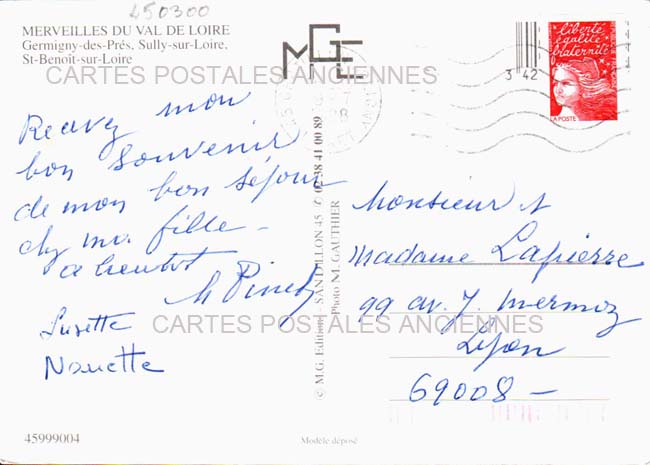 450300
MERVEILLES DU VAL DE LOIRE
Germigny-des-Prés, Sully-sur-Loire,
St-Benoît-sur-Loire
MGE
CARTES POSTALES ANCIENNES
3 42
liberté
égalité
fraternité
LA POSTE
Recevez mon
bon souvenir
de mon bon séjour
chez ma fille -
a bientot
M Pinet
Lusette
Nanette
© M.G. Editions - SANDILLON 45 / 02 38 41 00 89
Photo M. GAUTHIER
Monsieur et
Madame Lapierre
99 av. J. Mermoz
Lyon
69008 -
CARTES POSTALES ANCIENNES
45999004
Modèle déposé